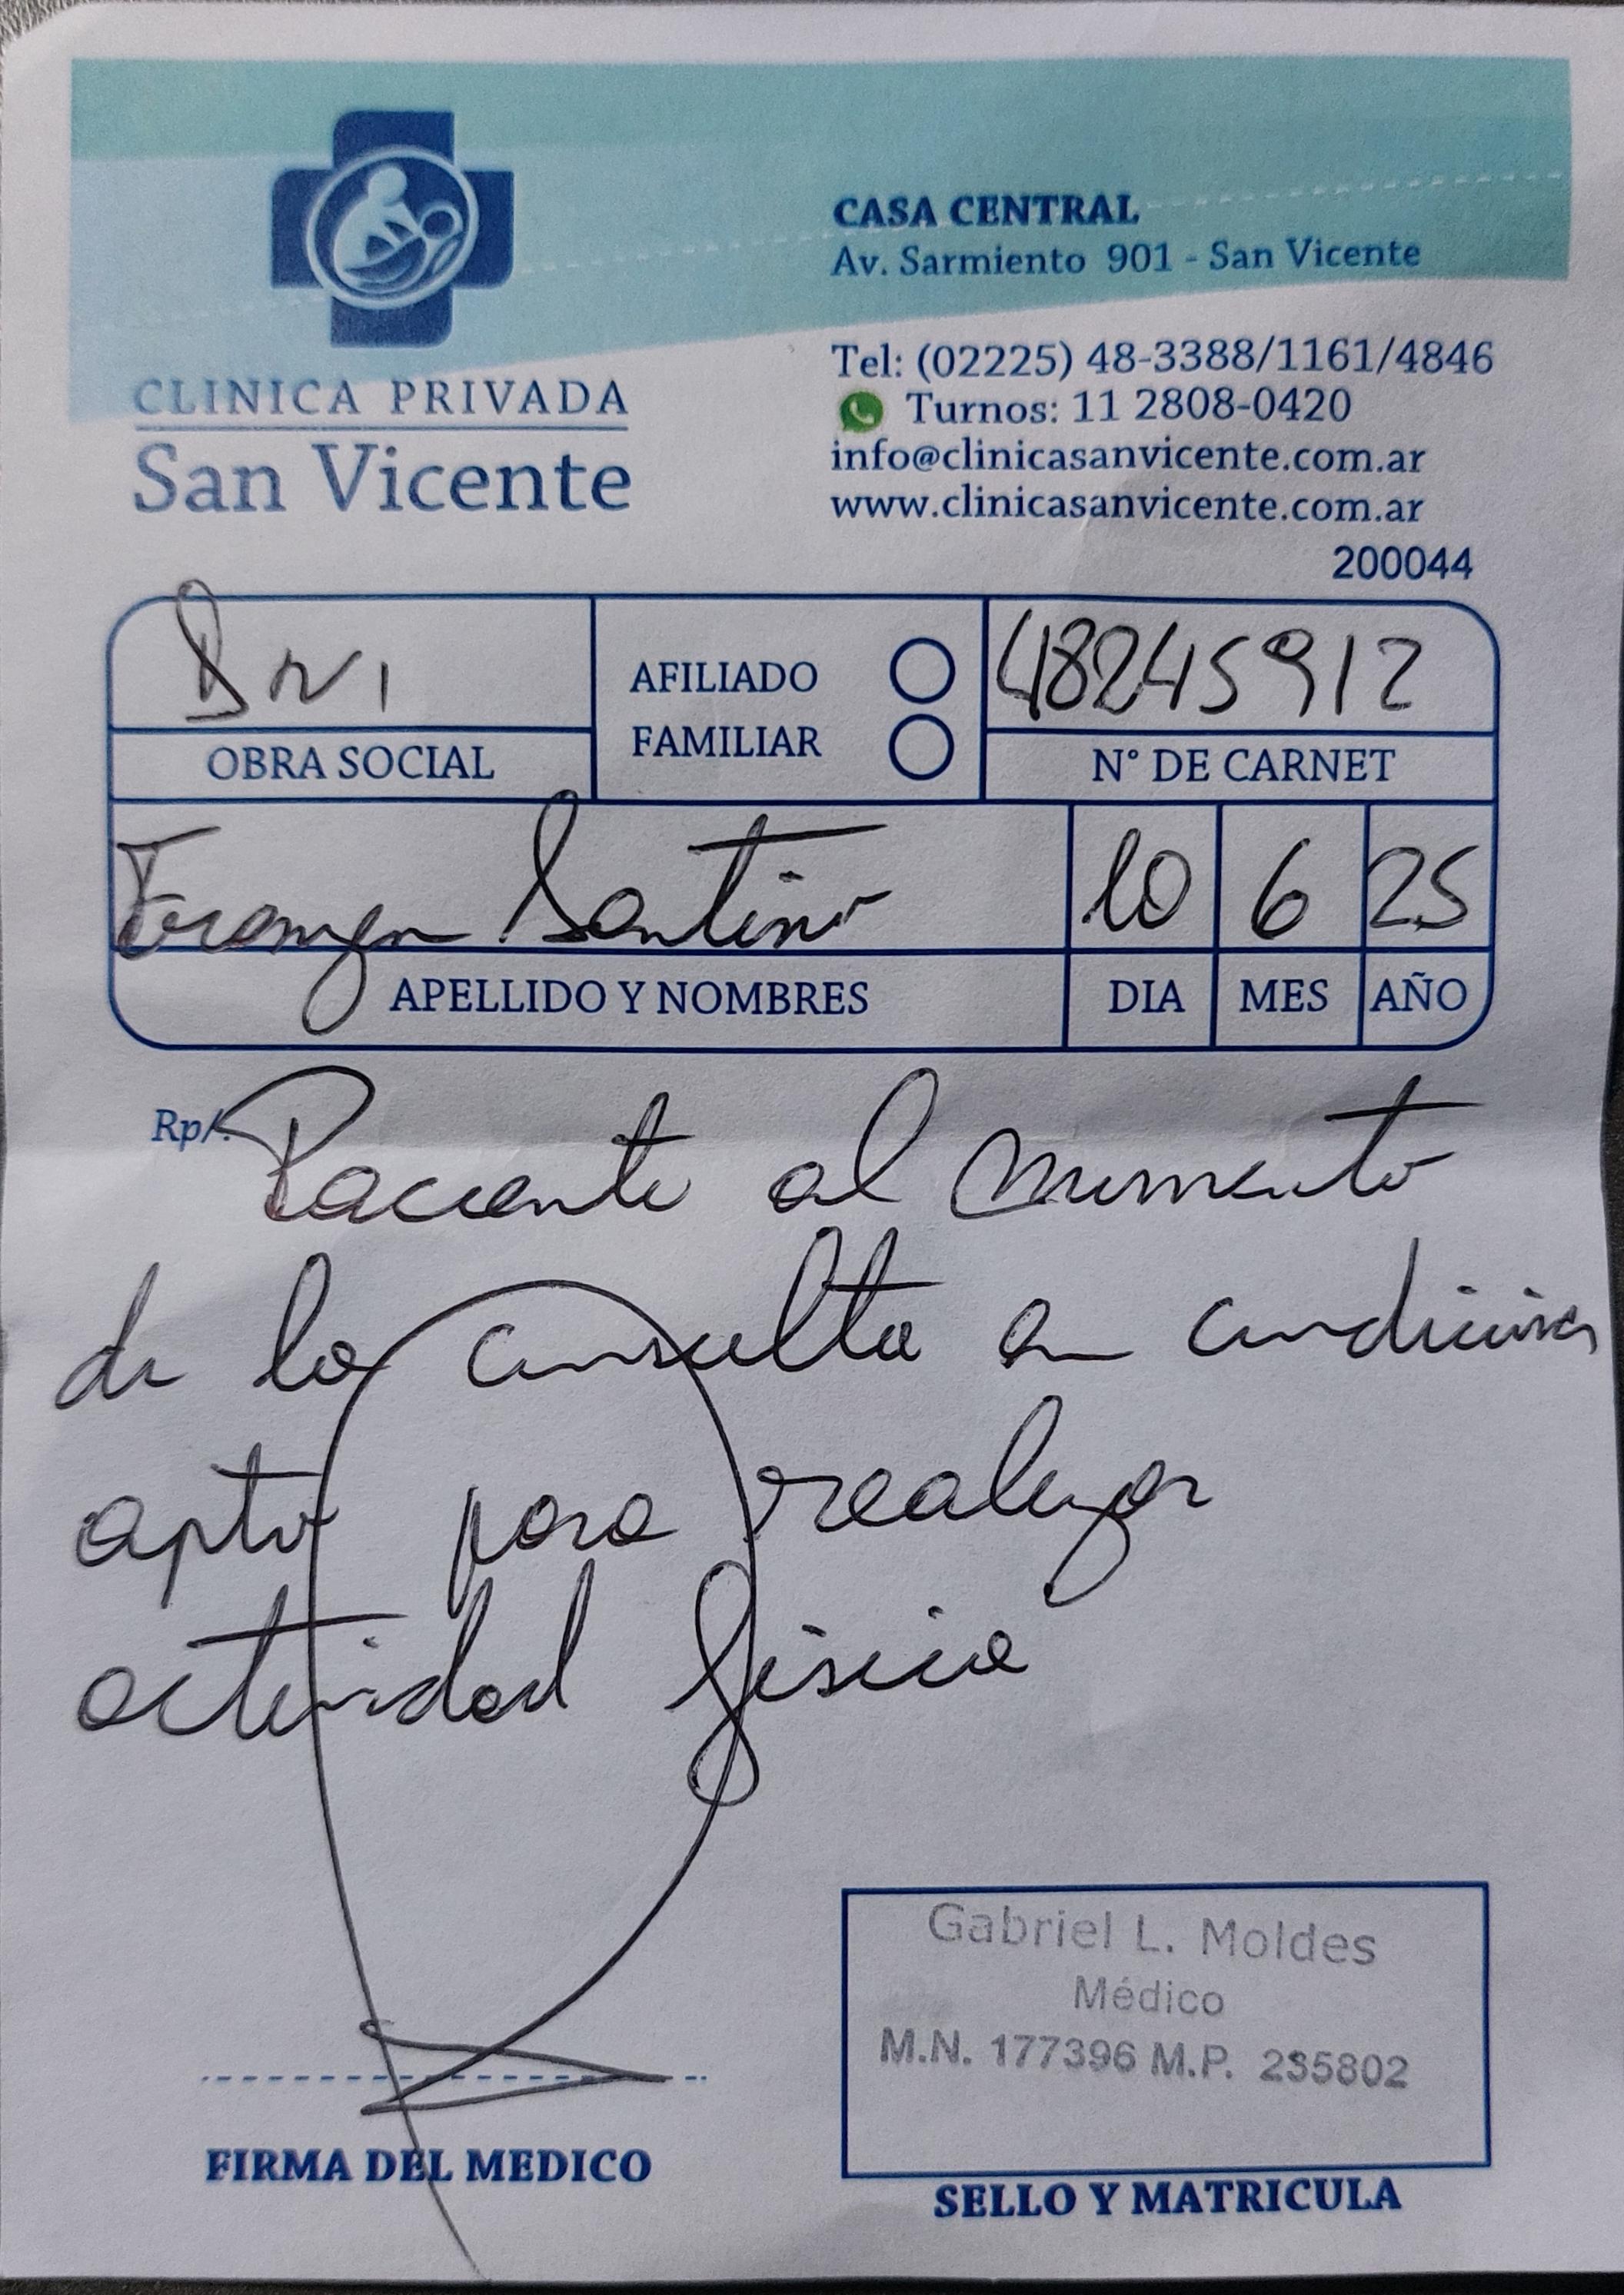 CLINICA PRIVADA
San Vicente
CASA CENTRAL
Av. Sarmiento 901 - San Vicente
Tel: (02225) 48-3388/1161/4846
Turnos: 11 2808-0420
info@clinicasanvicente.com.ar
www.clinicasanvicente.com.ar
200044
DNI
OBRA SOCIAL
AFILIADO
FAMILIAR
48245912
N° DE CARNET
Santino
APELLIDO Y NOMBRES
10 6 25
DIA MES AÑO
Rp/. Paciente al momento
de la consulta en condiciones
apto para realizar
actividad fisica
FIRMA DEL MEDICO
Gabriel L. Moldes
Médico
M.N. 177396 M.P. 235802
SELLO Y MATRICULA